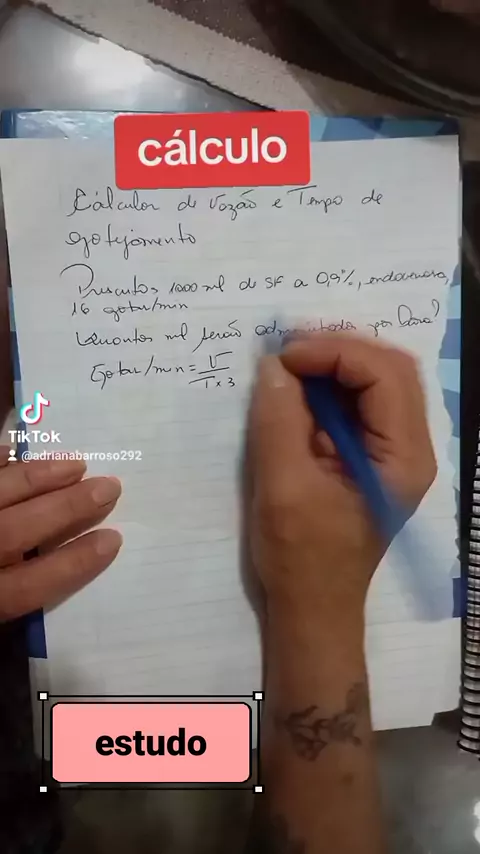 cálculo
Cálculos de Vazão e Tempo de
gotejamento
Prescritos 1000 ml de SF a 0,9%, endovenoso,
16 gotas/min
Quantos ml serão administrados por hora?
Gotas/min = V
T x 3
TikTok
@adrianabarroso292
estudo